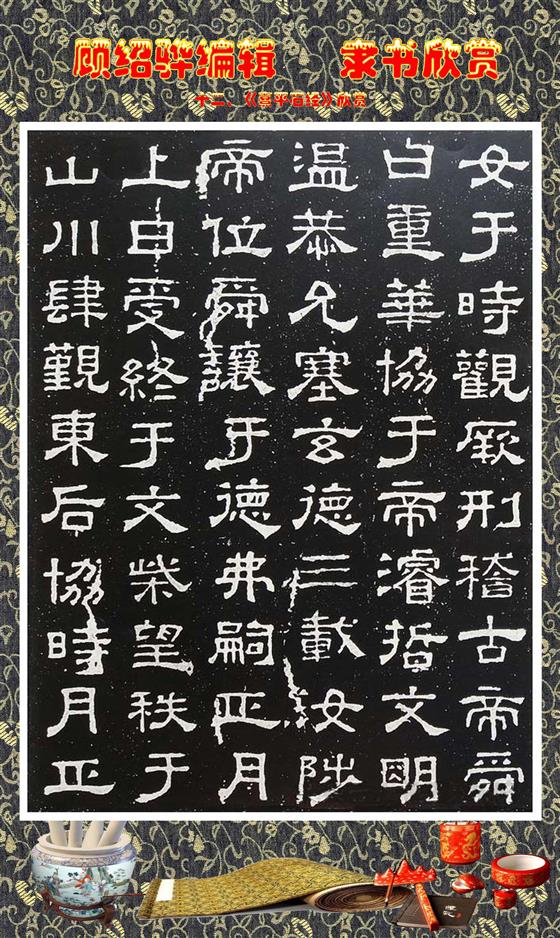 顾绍骅编辑 隶书欣赏
十二、《熹平石经》欣赏
女于時觀厥刑稽古帝舜
曰重華協于帝濬哲文明
温恭允塞玄德三載女陟
帝位舜讓于德弗嗣正月
上日受終于文柴望秩于
山川肆覲東后協時月正